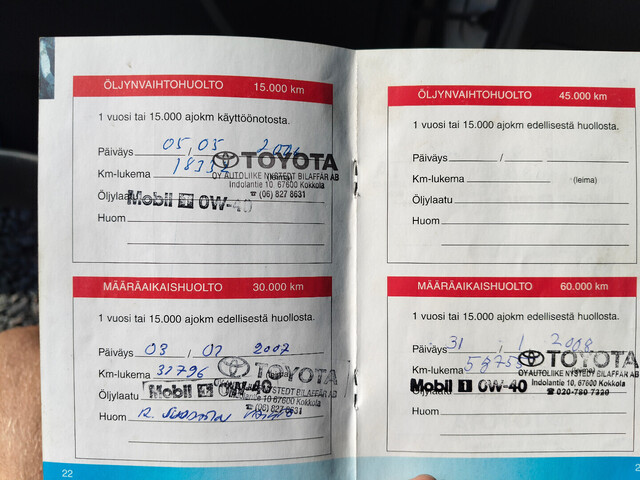 ÖLJYNVAIHTOHUOLTO 15.000 km
1 vuosi tai 15.000 ajokm käyttöönotosta.
Päiväys 05 / 05
Km-lukema
TOYOTA
OY AUTOLIIKE NYSTEDT BILAFFÄR AB
Indolantie 10, 67600 Kokkola
☎ (06) 827 8631
Öljylaatu Mobil 1 0W-40
Huom
MÄÄRÄAIKAISHUOLTO 30.000 km
1 vuosi tai 15.000 ajokm edellisestä huollosta.
Päiväys 03 / 02 2007
Km-lukema 32796
TOYOTA
Öljylaatu Mobil 1 0W-40
67600 Kokkola
☎ (06) 827 8631
Huom
22
ÖLJYNVAIHTOHUOLTO 45.000 km
1 vuosi tai 15.000 ajokm edellisestä huollosta.
Päiväys / 
Km-lukema (leima)
Öljylaatu
Huom
MÄÄRÄAIKAISHUOLTO 60.000 km
1 vuosi tai 15.000 ajokm edellisestä huollosta.
Päiväys 31 / 1 2008
Km-lukema
TOYOTA
OY AUTOLIIKE NYSTEDT BILAFFÄR AB
Mobil 1 0W-40 Indolantie 10, 67600 Kokkola
☎ 020-780 7320
Huom